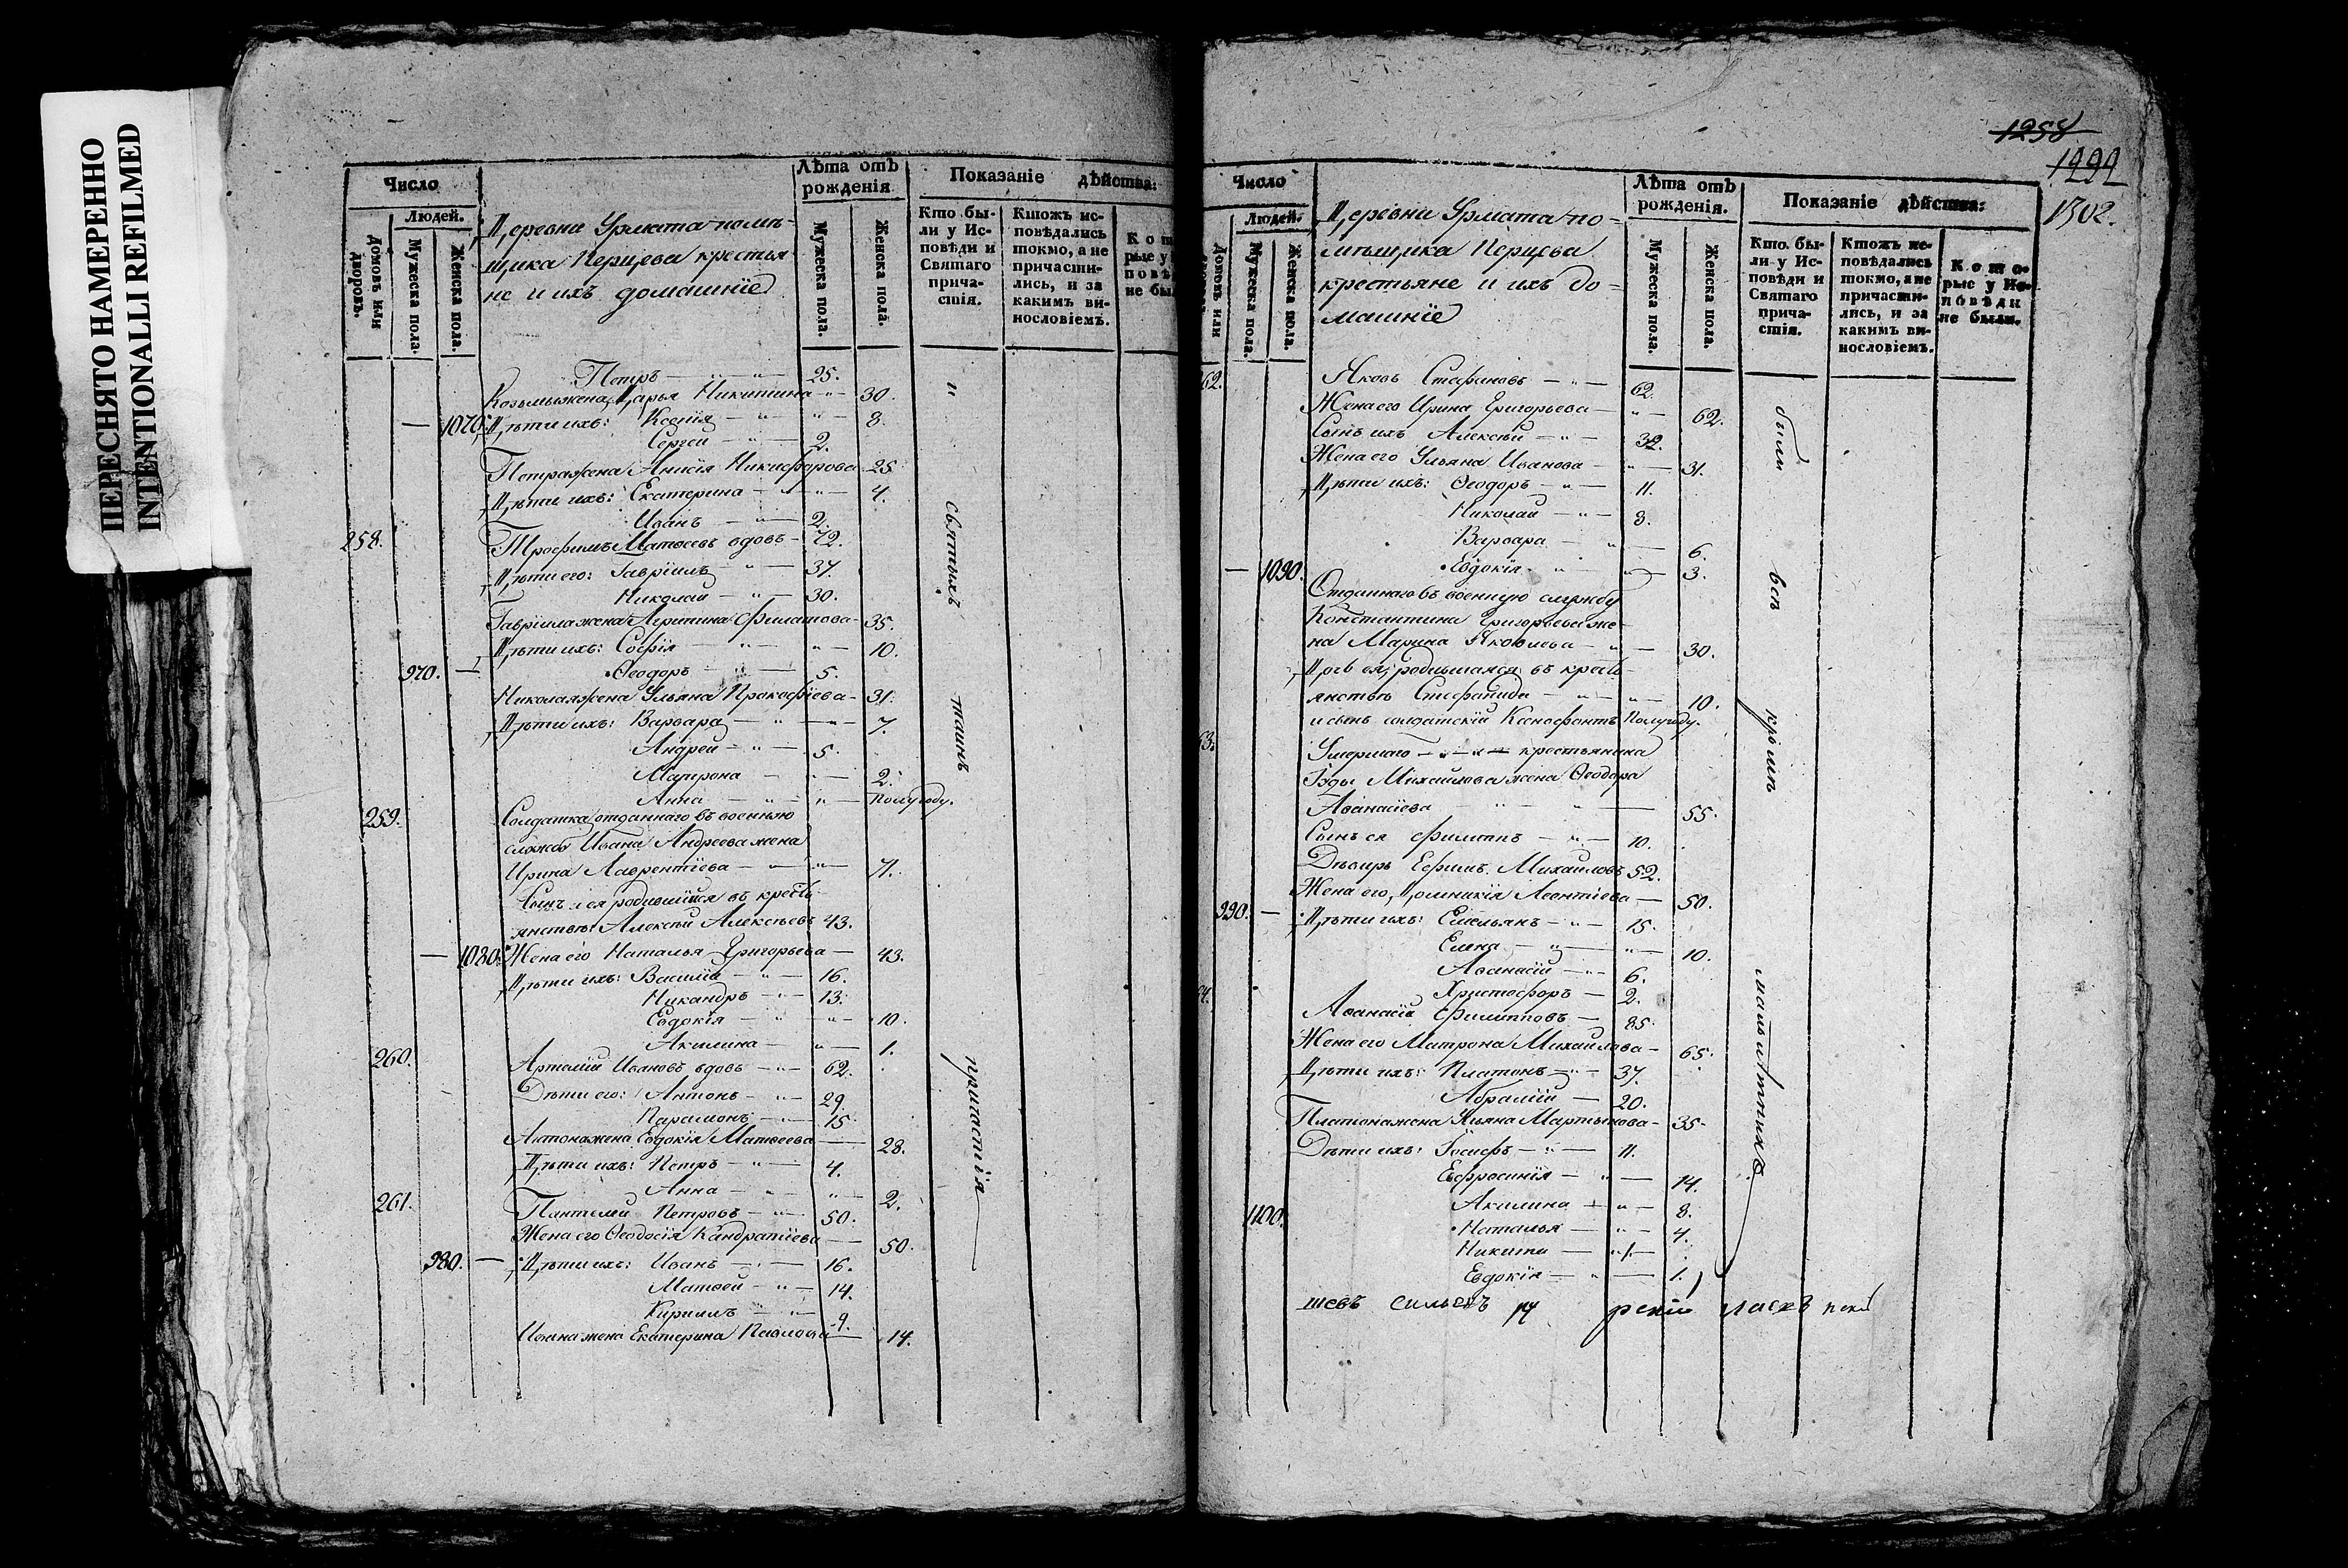 ПЕРЕСНЯТО НАМЕРЕННО
INTENTIONALLI REFILMED
Число
Людей.
Домовъ или дворовъ.
Мужеска пола.
Женска пола.
Деревни Урмата помѣ-
щика Перцева крестья
не и ихъ домашніе
Лѣта отъ рожденія
Мужеска пола.
Женска пола.
Показаніе дѣйства:
Кто бы-
ли у Ис-
повѣди и
Святаго
прича-
стія.
Ктожъ ис-
повѣдались
токмо, а не
причасти-
лись, и за
какимъ ви-
нословіемъ.
Петръ — " — 25.
Козьмы жена Дарья Никитина — " 30.
— 1070. Дѣти ихъ: Ксенія — " — " 8.
Сергей — " — 2.
Петра жена Анисія Никифорова 25.
Дѣти ихъ: Екатерина — " — " — 4.
Иванъ — " — 2.
258. Трофимъ Матѳеевъ вдовъ — 72.
Дѣти его: Гавріилъ — " — 37.
Николай — " — 30.
Гавріила жена Агрипина Филатова — 35.
Дѣти ихъ: София — " — " — 10.
970. — Ѳеодоръ — " — 5.
Николая жена Ульяна Прокофіева — 31.
Дѣти ихъ: Варвара — " — " — 7.
Андрей — " — 5.
Матрона — " — 2.
Анна — " — " — Полугоду.
259. Солдатка отданнаго въ военную
службу Ивана Андреева жена
Ирина Лаврентіева — " — " — 71.
Сынъ ея родившійся въ кресть
янствѣ Алексѣй Алексѣевъ 43.
— 1080. Жена его Наталья Григорьева — 43.
Дѣти ихъ: Василій — " — 16.
Никандръ — " — 13.
Евдокія — " — " — 10.
Акилина — " — 1.
260. Артемій Ивановъ вдовъ — " — 62.
Дѣти его: Антонъ — " — 29.
Парамонъ — " — 15.
Антона жена Евдокія Матѳеева — 28.
Дѣти ихъ: Петръ — " — 4.
Анна — " — " — 2.
261. Пантелей Петровъ — " — 50.
Жена его Ѳеодосія Кандратіева — 50.
980. — Дѣти ихъ: Иванъ — " — 16.
Матѳей — " — 14.
Кирилъ — " — 9.
Ивана жена Екатерина Павлова — 14.
и
святыхъ
таинъ
причастія
1258
1299
1302.
Число
Людей.
Домовъ или
Мужеска пола.
Женска пола.
Деревни Урмата по-
мѣщика Перцева
крестьяне и ихъ до-
машніе
Лѣта отъ рожденія.
Мужеска пола.
Женска пола.
Показаніе дѣйства:
Кто бы-
ли у Ис-
повѣди и
Святаго
прича-
стія.
Ктожъ ис-
повѣдались
токмо, а не
причасти-
лись, и за
какимъ ви-
нословіемъ.
Кото-
рые у Ис-
повѣди
не были.
62. Яковъ Стефановъ — " — 62.
Жена его Ирина Григорьева — " — 62.
Сынъ ихъ Алексѣй — " — 32.
Жена его Ульяна Иванова — " — 31.
Дѣти ихъ: Ѳеодоръ — " — 11.
Николай — " — 8.
Варвара — " — 6.
— 1090. Евдокія — " — " — 3.
Отданнаго въ военную службу
Константина Григорьева же-
на Марина Яковлева — " — 30.
Дочь ея, родившаяся въ кресть-
янствѣ Стефанида — " — " — 10.
и сынъ солдатскій Ксенофонтъ Полугоду.
63. Умершаго — " — " — крестьянина
Михайлова жена Ѳеодора
Аѳанасіева — " — " — 55.
Сынъ ея Филиппъ — " — 10.
Деверь Ефимъ Михайловъ 52.
Жена его, Домникія Леонтіева — 50.
990. — Дѣти ихъ: Емельянъ — " — 15.
Елена — " — " — 10.
Аѳанасій — " — 6.
Христофоръ — 2.
64. Аѳанасій Филипповъ — 85.
Жена его Матрона Михайлова — 65.
Дѣти ихъ: Платонъ — " — 37.
Абрамій — 20.
Платона жена Ульяна Мартынова — 35.
Дѣти ихъ: Іосифъ — " — 11.
Евфросинія — " — 14.
Акилина — " — 8.
1100. Наталья — " — 4.
Никита — " 1.
Евдокія — " — 1.
были
всѣ
кромѣ
малолѣтнихъ
шевъ сильевъ